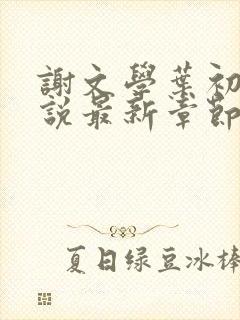 謝文學葉初
說最新章節
夏日绿豆冰棒